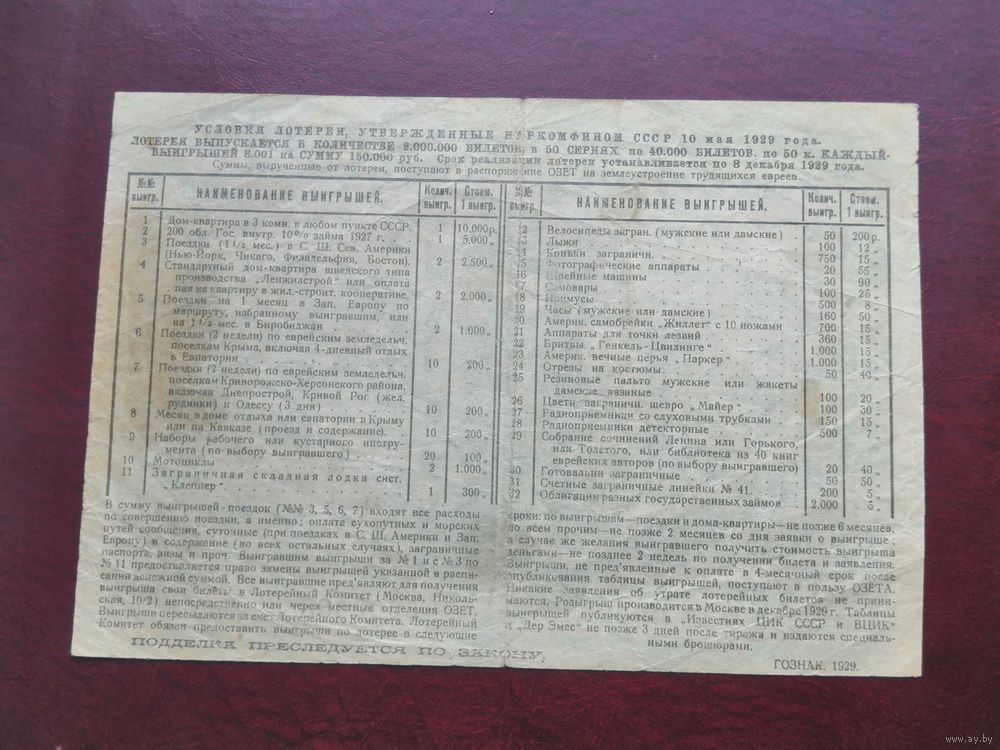 УСЛОВИЯ ЛОТЕРЕИ, УТВЕРЖДЕННЫЕ НАРКОМФИНОМ СССР 10 мая 1929 года.
ЛОТЕРЕЯ ВЫПУСКАЕТСЯ В КОЛИЧЕСТВЕ 2.000.000 БИЛЕТОВ, в 50 СЕРИЯХ по 40.000 БИЛЕТОВ, по 50 к. КАЖДЫЙ.
ВЫИГРЫШЕЙ 8.001 на СУММУ 150.000 руб. Срок реализации лотереи устанавливается по 8 декабря 1929 года.
Суммы, вырученные от лотереи, поступают в распоряжение ОЗЕТ на землеустроение трудящихся евреев.
№№ выигр. НАИМЕНОВАНИЕ ВЫИГРЫШЕЙ. Колич. выигр. Стоим. 1 выигр.
1 Дом-квартира в 3 комн. в любом пункте СССР. 1 10.000р.
2 200 обл. Гос. внутр. 10% займа 1927 г. 1 5.000 „
3 Поездки (1 1/2 мес.) в С. Ш. Сев. Америки
(Нью-Йорк, Чикаго, Филадельфия, Бостон). 2 2,500 „
4 Стандартный дом-квартира шведского типа
производства „Ленжилстрой" или оплата
пая на квартиру в жил.-строит. кооперативе. 2 2,000 „
5 Поездки на 1 месяц в Зап. Европу по
маршруту, избранному выигравшим, или
на 1 1/2 мес. в Биробиджан 2 1.000 „
6 Поездки (2 недели) по еврейским земледельч.
поселкам Крыма, включая 4-дневный отдых
в Евпатории 10 200 „
7 Поездки (2 недели) по еврейским земледельч.
поселкам Криворожско-Херсонского района,
включая Днепрострой, Кривой Рог (жел.
рудники) и Одессу (3 дня) 10 200 „
8 Месяц в доме отдыха или санатории в Крыму
или на Кавказе (проезд и содержание). 10 200 „
9 Наборы рабочего или кустарного инстру-
мента (по выбору выигравшего) 20 100 „
10 Мотоциклы 2 1.000 „
11 Заграничная складная лодка сист.
„Клеппер" 1 300 „
№№ выигр. НАИМЕНОВАНИЕ ВЫИГРЫШЕЙ. Колич. выигр. Стоим. 1 выигр.
12 Велосипеды загран. (мужские или дамские) 50 200 р.
13 Лыжи 100 12 „
14 Коньки заграничн. 750 15 „
15 Фотографические аппараты 20 55 „
16 Швейные машины 30 90 „
17 Самовары 100 25 „
18 Примусы 500 8 „
19 Часы (мужские или дамские) 160 50 „
20 Америк. самобрейки „Жиллет" с 10 ножами 700 15 „
21 Аппараты для точки лезвий 360 15 „
22 Бритвы „Генкель-Цвилинге" 1.000 15 „
23 Америк. вечные перья „Паркер" 1.000 15 „
24 Отрезы на костюмы. 50 45 „
25 Резиновые пальто мужские или жакеты
дамские вязаные 100 20 „
26 Цветн. заграничн. шевро „Майер" 100 30 „
27 Радиоприемники со слуховыми трубками 150 15 „
28 Радиоприемники детекторные 500 7 „
29 Собрание сочинений Ленина или Горького,
или Толстого, или библиотека из 40 книг
еврейских авторов (по выбору выигравшего) 20 40 „
30 Готовальни заграничные 50 50 „
31 Счетные заграничные линейки № 41. 200 5 „
32 Облигации разных государственных займов 2.000 5 „
В сумму выигрышей-поездок (№№ 3, 5, 6, 7) входят все расходы
по совершению поездки, а именно: оплата сухопутных и морских
путей сообщения, суточные (при поездках в С. Ш. Америки и Зап.
Европу) и содержание (во всех остальных случаях), заграничные
паспорта, визы и проч. Выигравшим выигрыши за № 1 и с № 3 по
№ 11 предоставляется право замены выигрышей указанной в распи-
сании денежной суммой. Все выигравшие пред'являют для получения
выигрыша свои билеты в Лотерейный Комитет (Москва, Николь-
ская, 10/2) непосредственно или через местные отделения ОЗЕТ.
Выигрыши пересылаются за счет Лотерейного Комитета. Лотерейный
Комитет обязан предоставить выигрыши по лотерее в следующие
сроки: по выигрышам—поездки и дома-квартиры—не позже 6 месяцев,
по всем прочим—не позже 2 месяцев со дня заявки о выигрыше;
в случае же желания выигравшего получить стоимость выигрыша
деньгами—не позднее 2 недель по получении билета и заявления.
Выигрыши, не пред'явленные к оплате в 4-месячный срок после
опубликования таблицы выигрышей, поступают в пользу ОЗЕТА.
Никакие заявления об утрате лотерейных билетов не прини-
маются. Розыгрыш производится в Москве в декабре 1929 г. Таблицы
выигрышей публикуются в „Известиях ЦИК СССР и ВЦИК"
и „Дер Эмес" не позже 3 дней после тиража и издаются специаль-
ными брошюрами.
ПОДДЕЛКА ПРЕСЛЕДУЕТСЯ ПО ЗАКОНУ.
ГОЗНАК. 1929.
www.ay.by